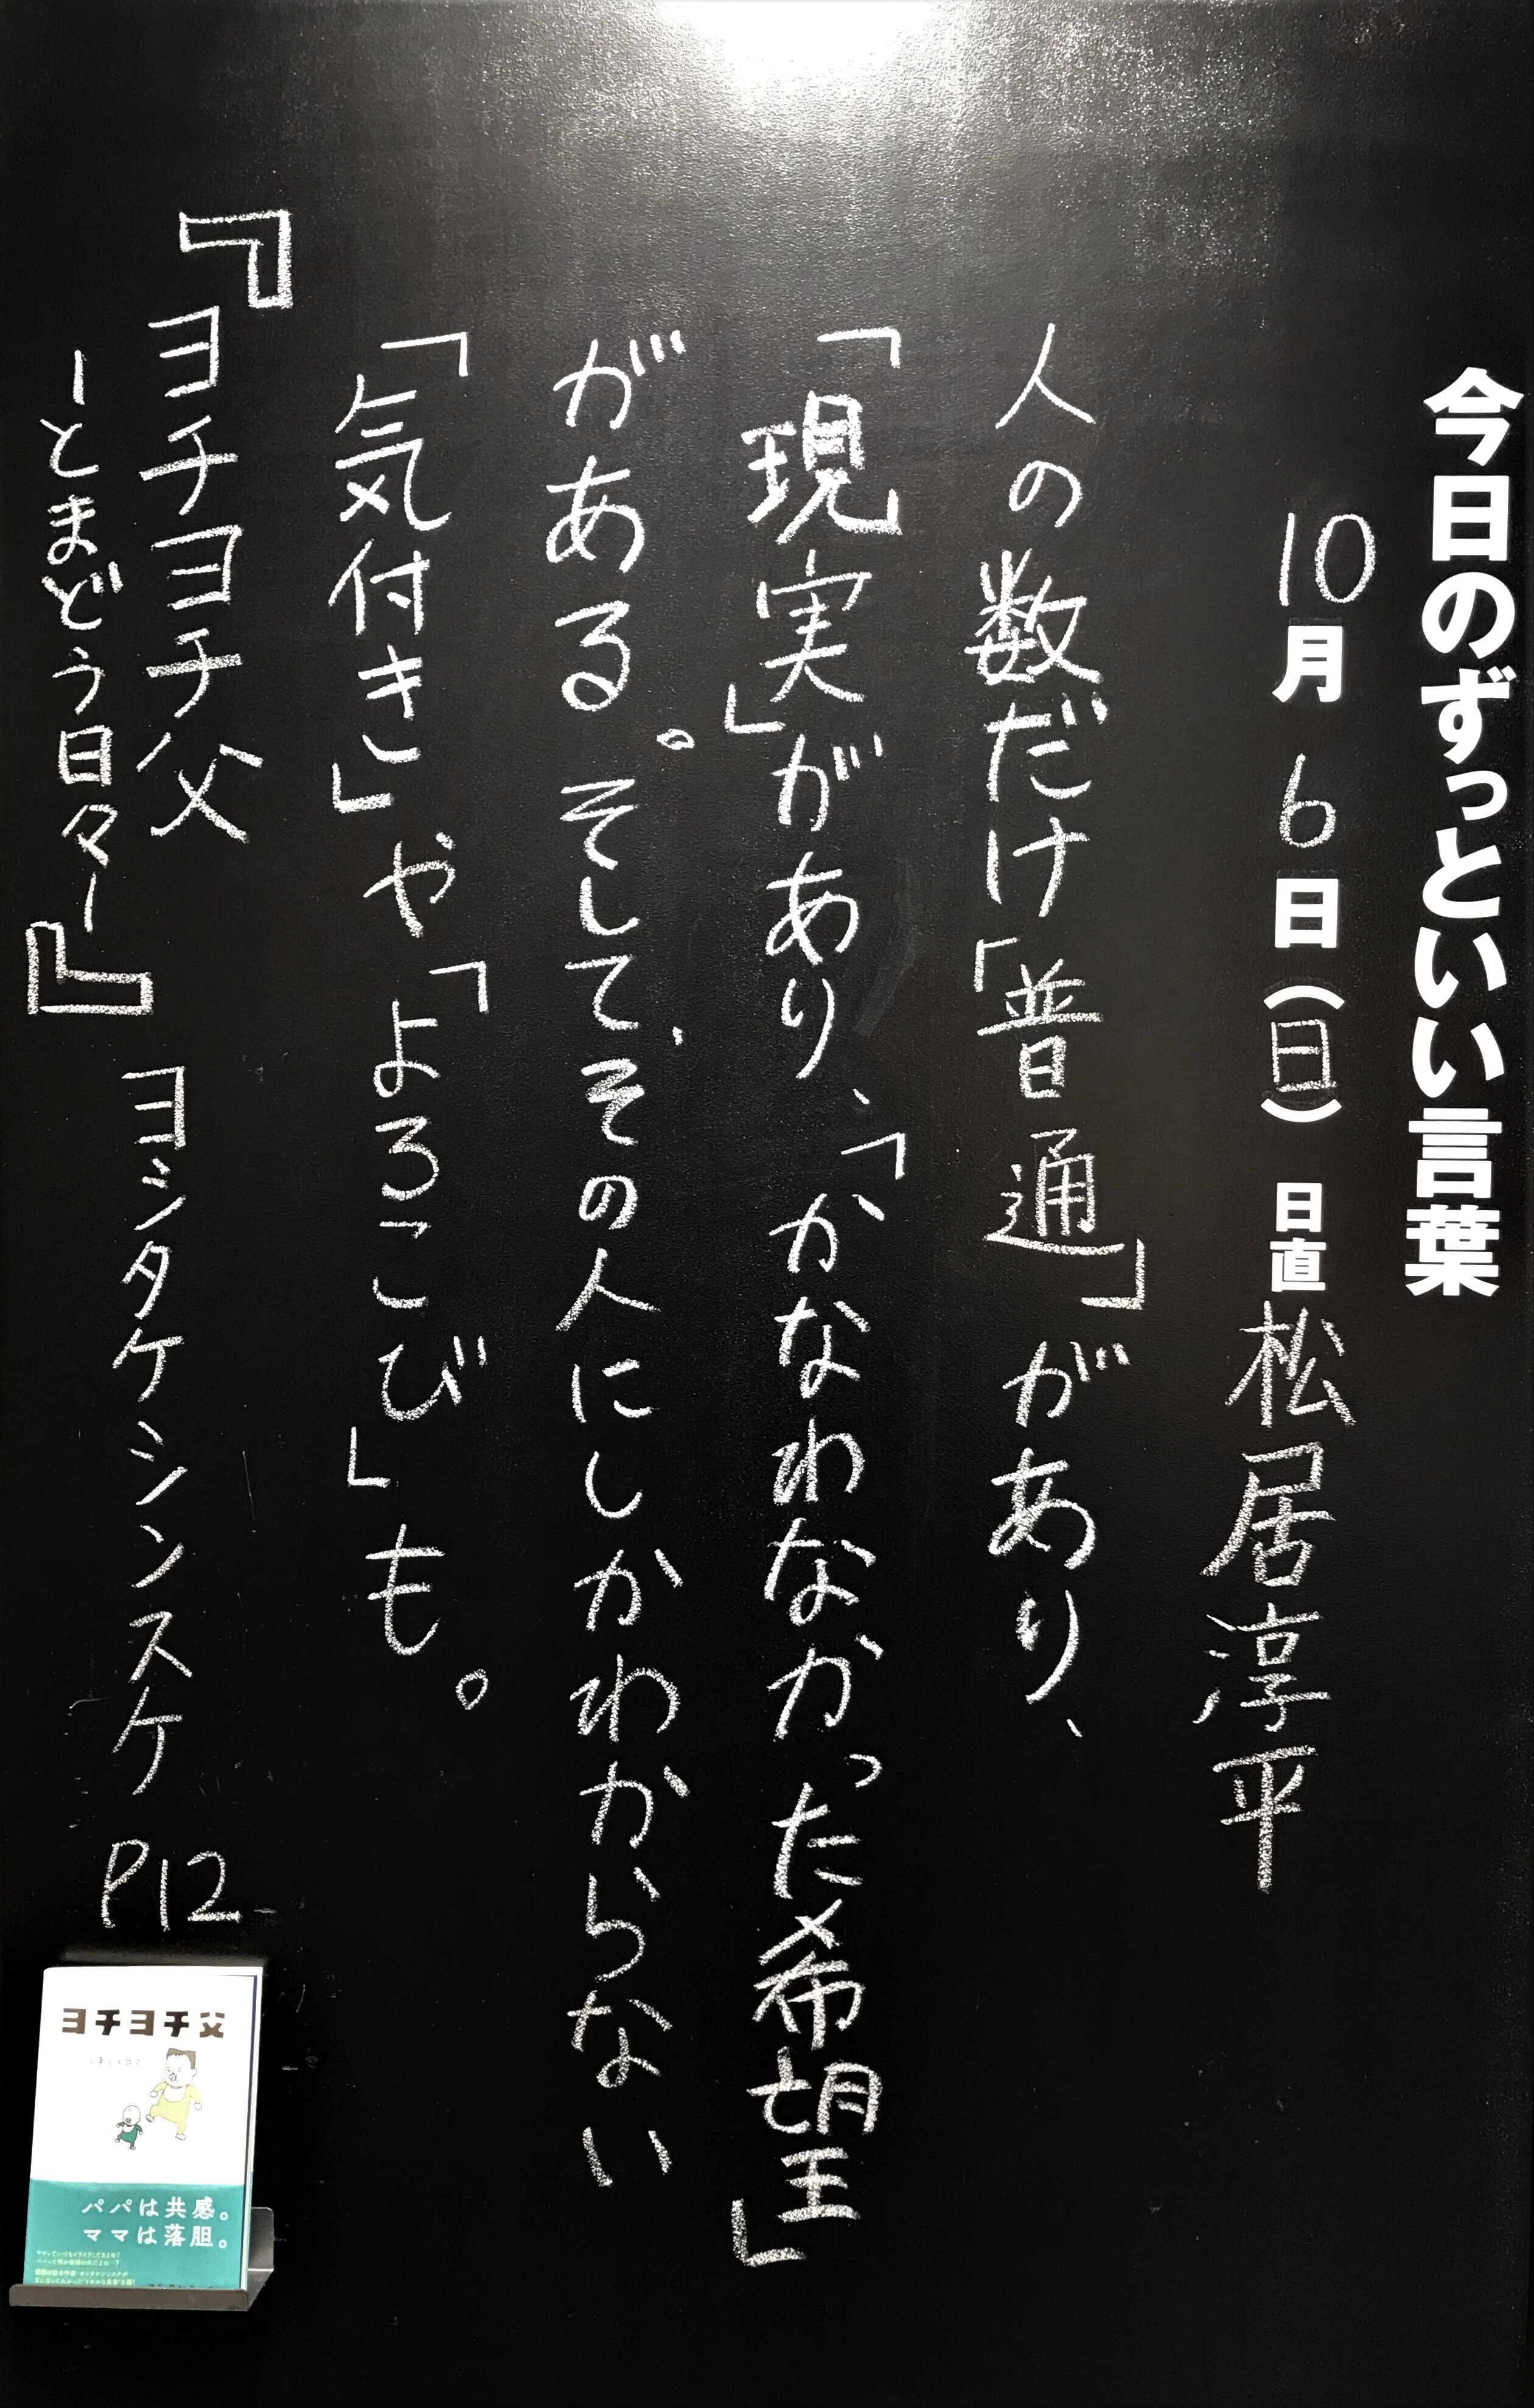 今日のずっといい言葉
10月 6日(日) 日直 松居淳平
人の数だけ「普通」があり、
「現実」があり、「かなわなかった希望」
がある。そして、その人にしかわからない
「気付き」や「よろこび」も。
『ヨチヨチ父
ーとまどう日々ー』 ヨシタケシンスケ P12
ヨチヨチ父
パパは共感。
ママは落胆。